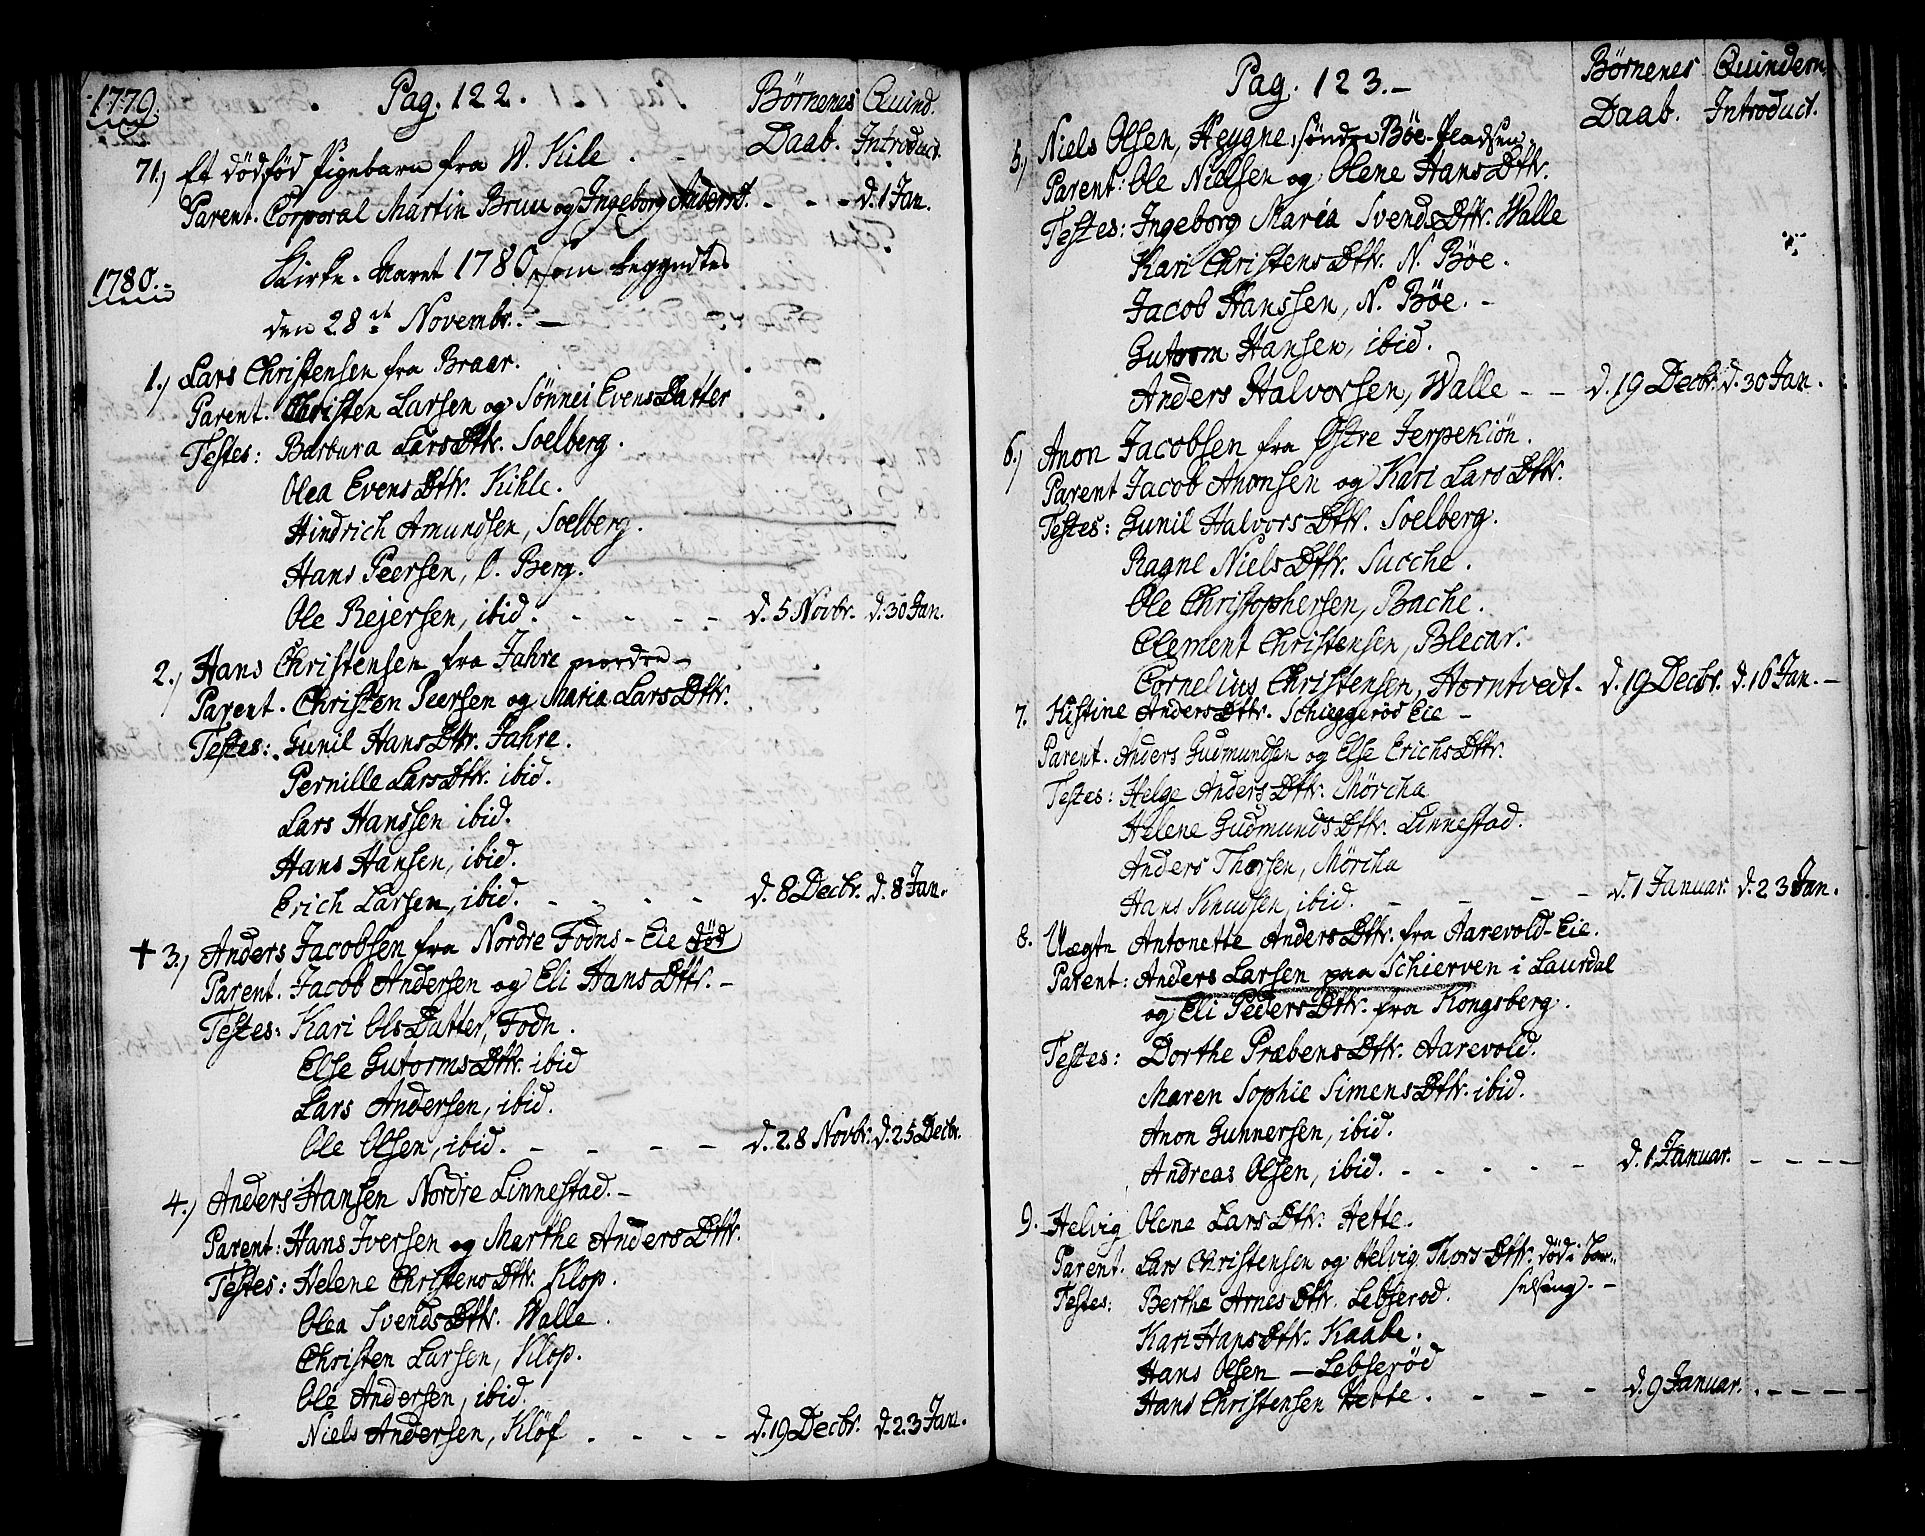 1779.
Pag. 122.
Børnenes Daab.
Quind. Introduct.
71.) Et dødfød Pigebarn fra W. Kile . -
Parent. Corporal Martin Bruu og Ingeborg Andersd. - - - d. 1 Jan.
1780.-
Kirke-Aaret 1780, som begyndtes
den 28de Novembr. -
1.) Lars Christensen fra Braar.
Parent. Christen Larsen og Sønnei Evens Datter
Testes: Barbara Lars Dttr. Soelberg.
Olea Evens Dttr. Kihle.
Hindrich Amundsen, Soelberg.
Hans Peersen, O. Berg.
Ole Rejersen, ibid. - - - - d. 5 Novbr. d. 30 Jan.
2.) Hans Christensen fra Jahre nordre -
Parent. Christen Peersen og Maria Lars Dttr.
Testes: Gunil Hans Dttr. Jahre.
Pernille Lars Dttr. ibid.
Lars Hanssen ibid.
Hans Hansen, ibid.
Erich Larsen, ibid. - - - - d. 8 Decbr. d. 8 Jan.
+ 3.) Anders Jacobsen fra Nordre Fodns-Eie død
Parent. Jacob Andersen og Eli Hans Dttr. -
Testes: Kari Ols Datter, Fodn.
Else Gutorms Dttr. ibid
Lars Andersen, ibid.
Ole Olsen, ibid. - - - - d. 28 Novbr. d. 25 Decbr.
4.) Anders Hansen Nordre Linnestad. -
Parent: Hans Iversen og Marthe Anders Dttr.
Testes: Helene Christens Dttr. Klop.
Olea Svends Dttr. Walle.
Christen Larsen, Klop.
Ole Andersen, ibid.
Niels Andersen, Kløf - - - - d. 19 Decbr. d. 23 Jan.
Pag. 123. -
Børnenes Daab.
Quindern. Introduct.
5.) Niels Olsen, Heygne, søndre Bøe-Pladsen
Parent: Ole Nielsen og Olene Hans Dttr.
Testes: Ingeborg Maria Svends Dttr. Walle
Kari Christens Dttr. N. Bøe.
Jacob Hanssen, N. Bøe. -
Gutorm Hansen, ibid.
Anders Halvorsen, Walle - - d. 19 Decbr. d. 30 Jan.
6.) Anon Jacobsen fra Østre Jerpekiön.
Parent Jacob Anonsen og Kari Lars Dttr.
Testes: Gunil Halvors Dttr. Soelberg.
Ragne Niels Dttr. Sucche.
Ole Christophersen, Bache.
Clement Christensen, Blecar.
Cornelius Christensen, Horntvedt. d. 19 Decbr. d. 16 Jan. -
7. Kistine Anders Dttr. Schieggerød Eie -
Parent. Anders Gudmundsen og Else Erichs Dttr.
Testes: Helge Anders Dttr. Mörcha
Helene Gudmunds Dttr. Linnestad.
Anders Thorsen, Mörcha
Hans Knudsen, ibid. - - - - d. 1 Januar. d. 23 Jan.
8. Uægte Antonette Anders Dttr. fra Aarevold-Eie.
Parent: Anders Larsen paa Schierven i Laurdal
og Eli Peders Dttr. fra Kongsberg.
Testes: Dorthe Præbens Dttr. Aarevold.
Maren Sophie Simens Dttr. ibid.
Anon Gunnersen, ibid.
Andreas Olsen, ibid. - - - - - d. 1 Januar. - - - -
9. Helvig Olena Lars Dttr. Hette.
Parent. Lars Christensen og Helvig Thors Dttr. død i Bar-
selseng. -
Testes: Berthe Arnes Dttr. Lebserod.
Kari Hans Dttr. Kaabe.
Hans Olsen - Lebserød
Hans Christensen Hette. - - - d. 9 Januar. - - - -